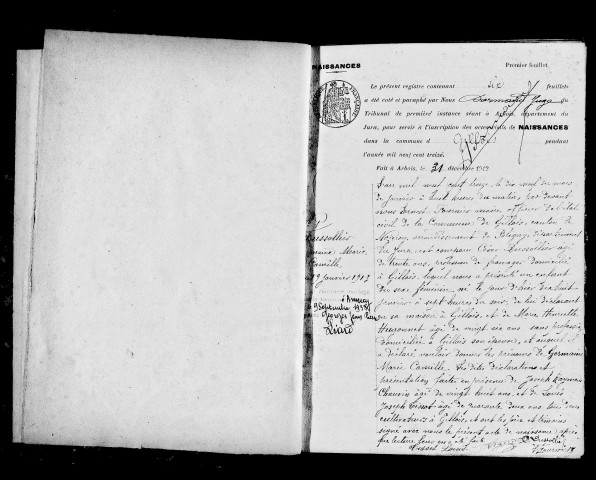 NAISSANCES
Premier feuillet.
Le présent registre contenant six feuillets
a été coté et paraphé par Nous Juge du
Tribunal de première instance séant à Arbois, département du
Jura, pour servir à l'inscription des actes de NAISSANCES
dans la commune d Gillois pendant
l'année mil neuf cent treize.
Fait à Arbois, le 21 décembre 1912
L'an mil neuf cent treize, le dix neuf du mois
de janvier à huit heures du matin, par devant
nous Ernest maire, officier de l'état
civil de la Commune de Gillois, canton de
Nozeroy, arrondissement de Poligny, département
du Jura, est comparu César Dussollier âgé
de trente ans, profession de domicilié
à Gillois, lequel nous a présenté un enfant
du sexe féminin, né le jour d'hier dix huit
janvier à sept heures du soir, de lui déclarant
en sa maison à Gillois, et de Marie
Huguenet âgée de vingt six ans sans profession
domiciliée à Gillois son épouse, et auquel il
a déclaré vouloir donner les prénoms de Germaine
Marie Camille. Les dites déclarations et
présentation faites en présence de Joseph
Chauvin âgé de vingt huit ans, et de Louis
Joseph âgé de quarante deux ans, tous deux
cultivateurs à Gillois, et ont les père et témoins
signé avec nous le présent acte de naissance, après
que lecture leur en a été faite
Dussollier
Germaine Marie
Camille
19 janvier 1913
à
9 Septembre 1938
Georges